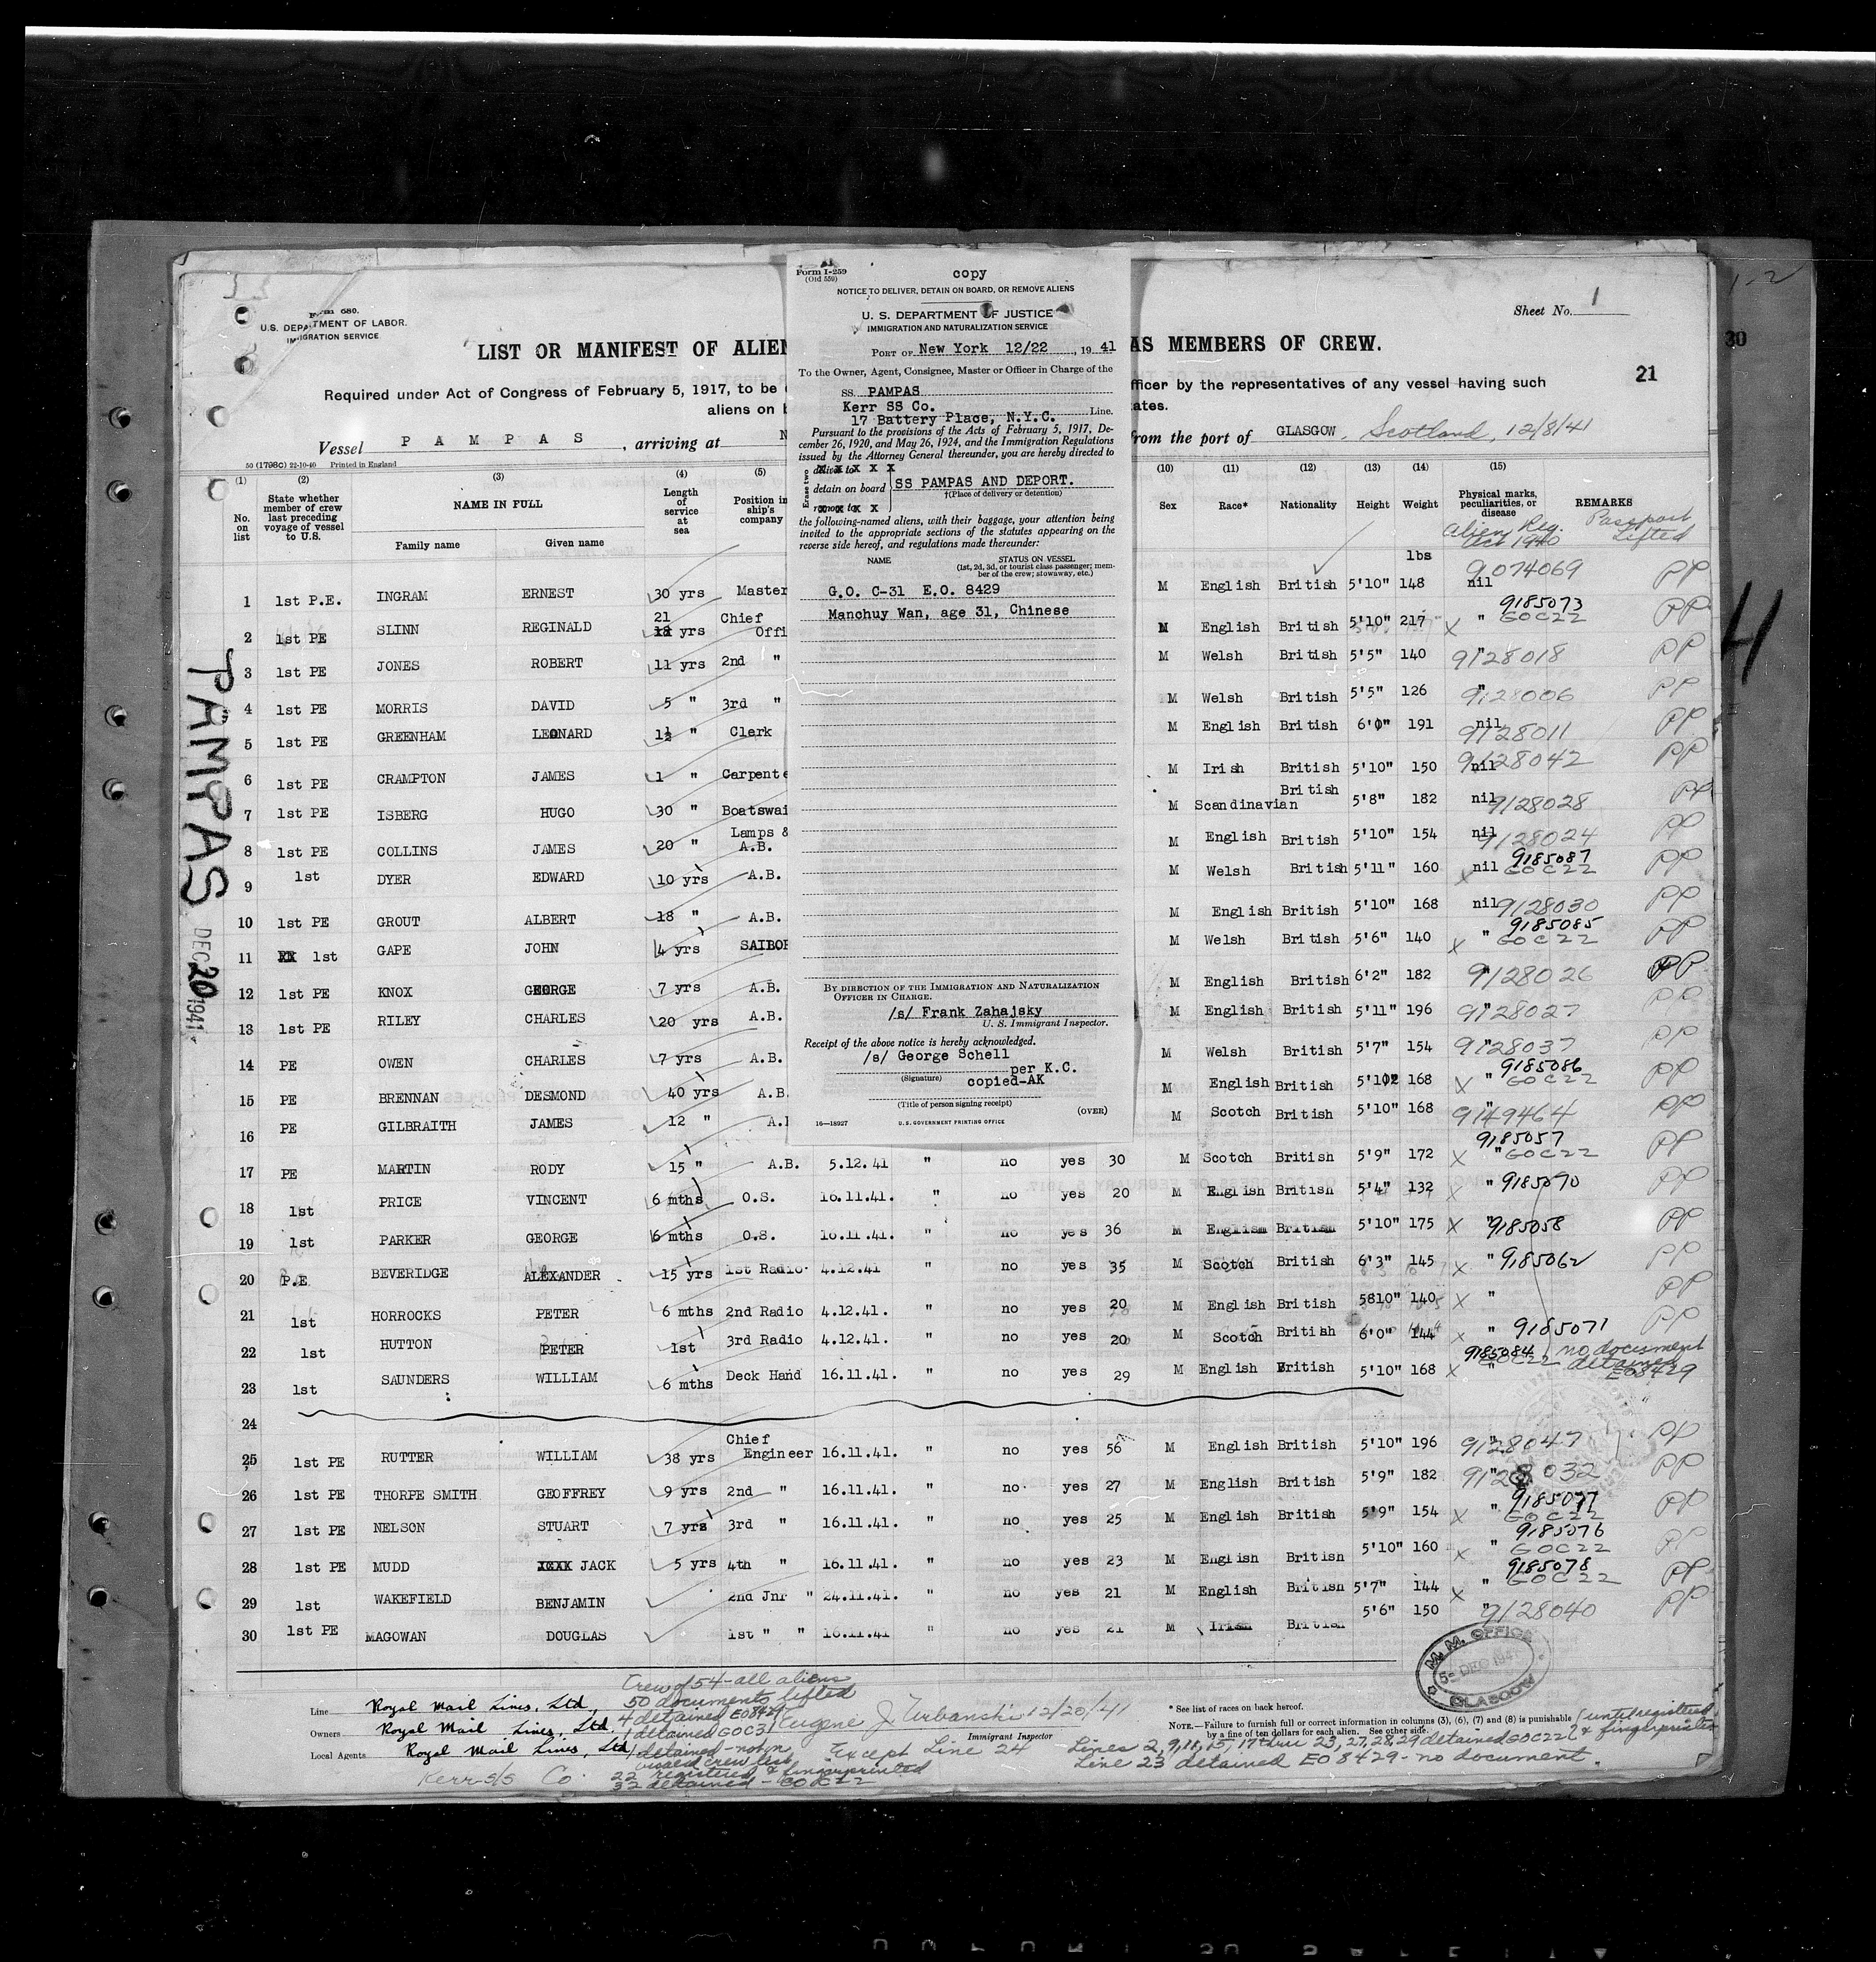 Form 680.
U.S. DEPARTMENT OF LABOR.
IMMIGRATION SERVICE
Sheet No. 1
LIST OR MANIFEST OF ALIEN
AS MEMBERS OF CREW.
21
30
4
Required under Act of Congress of February 5, 1917, to be
fficer by the representatives of any vessel having such
aliens on b
ates.
Vessel P A M P A S , arriving at N
from the port of GLASGOW, Scotland, 12/8/41
50 (1798C) 22-10-40 Printed in England
(1) (2) (3) (4) (5) (10) (11) (12) (13) (14) (15)
No. on list
State whether member of crew last preceding voyage of vessel to U.S.
NAME IN FULL
Family name Given name
Length of service at sea
Position in ship's company
Sex Race* Nationality Height Weight
Physical marks, peculiarities, or disease
REMARKS
Alien Reg. Act 1940
Passport Lifted
lbs
1 1st P.E. INGRAM ERNEST 30 yrs Master M English British 5'10" 148 nil 9074069 PP
2 1st PE SLINN REGINALD 21 yrs Chief Offi M English British 5'10" 217 x " 9185073 GOC22 PP
3 1st PE JONES ROBERT 11 yrs 2nd " M Welsh British 5'5" 140 " 9128018 PP
4 1st PE MORRIS DAVID 5 " 3rd " M Welsh British 5'5" 126 " 9128006 PP
5 1st PE GREENHAM LEONARD 1½ " Clerk M English British 6'0" 191 nil 9128011 PP
6 1st PE CRAMPTON JAMES 1 " Carpente M Irish British 5'10" 150 nil 9128042 PP
7 1st PE ISBERG HUGO 30 " Boatswai M Scandinavian British 5'8" 182 nil 9128028 PP
8 1st PE COLLINS JAMES 20 " Lamps & A.B. M English British 5'10" 154 nil 9128024 PP
9 1st DYER EDWARD 10 yrs A.B. M Welsh British 5'11" 160 x nil 9185087 GOC22 PP
10 1st PE GROUT ALBERT 18 " A.B. M English British 5'10" 168 nil 9128030 PP
11 1st GAPE JOHN 4 yrs SAILOR M Welsh British 5'6" 140 x " 9185085 GOC22 PP
12 1st PE KNOX GEORGE 7 yrs A.B. M English British 6'2" 182 " 9128026 PP
13 1st PE RILEY CHARLES 20 yrs A.B. M English British 5'11" 196 " 9128027 PP
14 PE OWEN CHARLES 7 yrs A.B. M Welsh British 5'7" 154 " 9128037 PP
15 PE BRENNAN DESMOND 40 yrs A.B. M English British 168 x " 9185086 GOC22 PP
16 PE GILBRAITH JAMES 12 " A. M Scotch British 5'10" 168 " 9149464 PP
17 PE MARTIN RODY 15 " A.B. 5.12.41 " no yes 30 M Scotch British 5'9" 172 x " 9185057 GOC22 PP
18 1st PRICE VINCENT 6 mths O.S. 16.11.41. " no yes 20 M English British 5'4" 132 x " 9185070 PP
19 1st PARKER GEORGE 6 mths O.S. 16.11.41. " no yes 36 M English British 5'10" 175 x " 9185058 PP
20 P.E BEVERIDGE ALEXANDER 15 yrs 1st Radio 4.12.41 " no yes 35 M Scotch British 6'3" 145 x " 9185062 PP
21 1st HORROCKS PETER 6 mths 2nd Radio 4.12.41. " no yes 20 M English British 5810" 140 x " PP
22 1st HUTTON PETER 1st 3rd Radio 4.12.41. " no yes 20 M Scotch British 6'0" 144 x " 9185071 PP
23 1st SAUNDERS WILLIAM 6 mths Deck Hand 16.11.41. " no yes 29 M English British 5'10" 168 x " 9185084 GOC22 no document detained EO8429
24
25 1st PE RUTTER WILLIAM 38 yrs Chief Engineer 16.11.41. " no yes 56 M English British 5'10" 196 " 9128047 PP
26 1st PE THORPE SMITH GEOFFREY 9 yrs 2nd " 16.11.41. " no. yes 27 M English British 5'9" 182 " 9128032 PP
27 1st PE NELSON STUART 7 yrs 3rd " 16.11.41. " no yes 25 M English British 5'9" 154 x " 9185077 GOC22 PP
28 1st PE MUDD JACK 5 yrs 4th " 16.11.41. " no yes 23 M English British 5'10" 160 x " 9185076 GOC22 PP
29 1st WAKEFIELD BENJAMIN 2nd Jnr " 24.11.41. " no yes 21 M English British 5'7" 144 x " 9185078 GOC22 PP
30 1st PE MAGOWAN DOUGLAS 1st " " 16.11.41 " no yes 21 M Irish British 5'6" 150 " 9128040 PP
PAMPAS
DEC 20 1941
Form I-259
(Old 559)
copy
NOTICE TO DELIVER, DETAIN ON BOARD, OR REMOVE ALIENS
U. S. DEPARTMENT OF JUSTICE
IMMIGRATION AND NATURALIZATION SERVICE
PORT OF New York 12/22, 19 41
To the Owner, Agent, Consignee, Master or Officer in Charge of the
SS. PAMPAS
Kerr SS Co.
17 Battery Place, N.Y.C. Line.
Pursuant to the provisions of the Acts of February 5, 1917, De-
cember 26, 1920, and May 26, 1924, and the Immigration Regulations
issued by the Attorney General thereunder, you are hereby directed to
Erase two
deliver to x x x x x
detain on board SS PAMPAS AND DEPORT.
†(Place of delivery or detention)
remove to x x x x
the following-named aliens, with their baggage, your attention being
invited to the appropriate sections of the statutes appearing on the
reverse side hereof, and regulations made thereunder:
NAME STATUS ON VESSEL
(1st, 2d, 3d, or tourist class passenger; mem-
ber of the crew; stowaway, etc.)
G.O. C-31 E.O. 8429
Manchuy Wan, age 31, Chinese
BY DIRECTION OF THE IMMIGRATION AND NATURALIZATION
OFFICER IN CHARGE.
/s/ Frank Zahajsky
U. S. Immigrant Inspector.
Receipt of the above notice is hereby acknowledged.
/s/ George Schell
per K.C.
(Signature) copied-AK
(Title of person signing receipt)
(OVER)
16—18927 U.S. GOVERNMENT PRINTING OFFICE
M. M. OFFICE
5 - DEC 1941
GLASGOW
Line Royal Mail Lines, Ltd,
Owners Royal Mail Lines, Ltd.
Local Agents Royal Mail Lines, Ltd
Kerr S/S Co
Crew of 54 - all aliens
50 documents lifted
4 detained EO8429
1 detained GOC31
1 detained - not on
visaed crew list
22 registered & fingerprinted
32 detained - GOC22
Eugene J Urbanski 12/20/41
Immigrant Inspector
Except Line 24
* See list of races on back hereof.
NOTE.—Failure to furnish full or correct information in columns (3), (6), (7) and (8) is punishable
by a fine of ten dollars for each alien. See other side.
Lines 2, 9, 11, 15, 17 thru 23, 27, 28, 29 detained GOC22 (until registered & fingerprinted
Line 23 detained EO 8429 - no document.